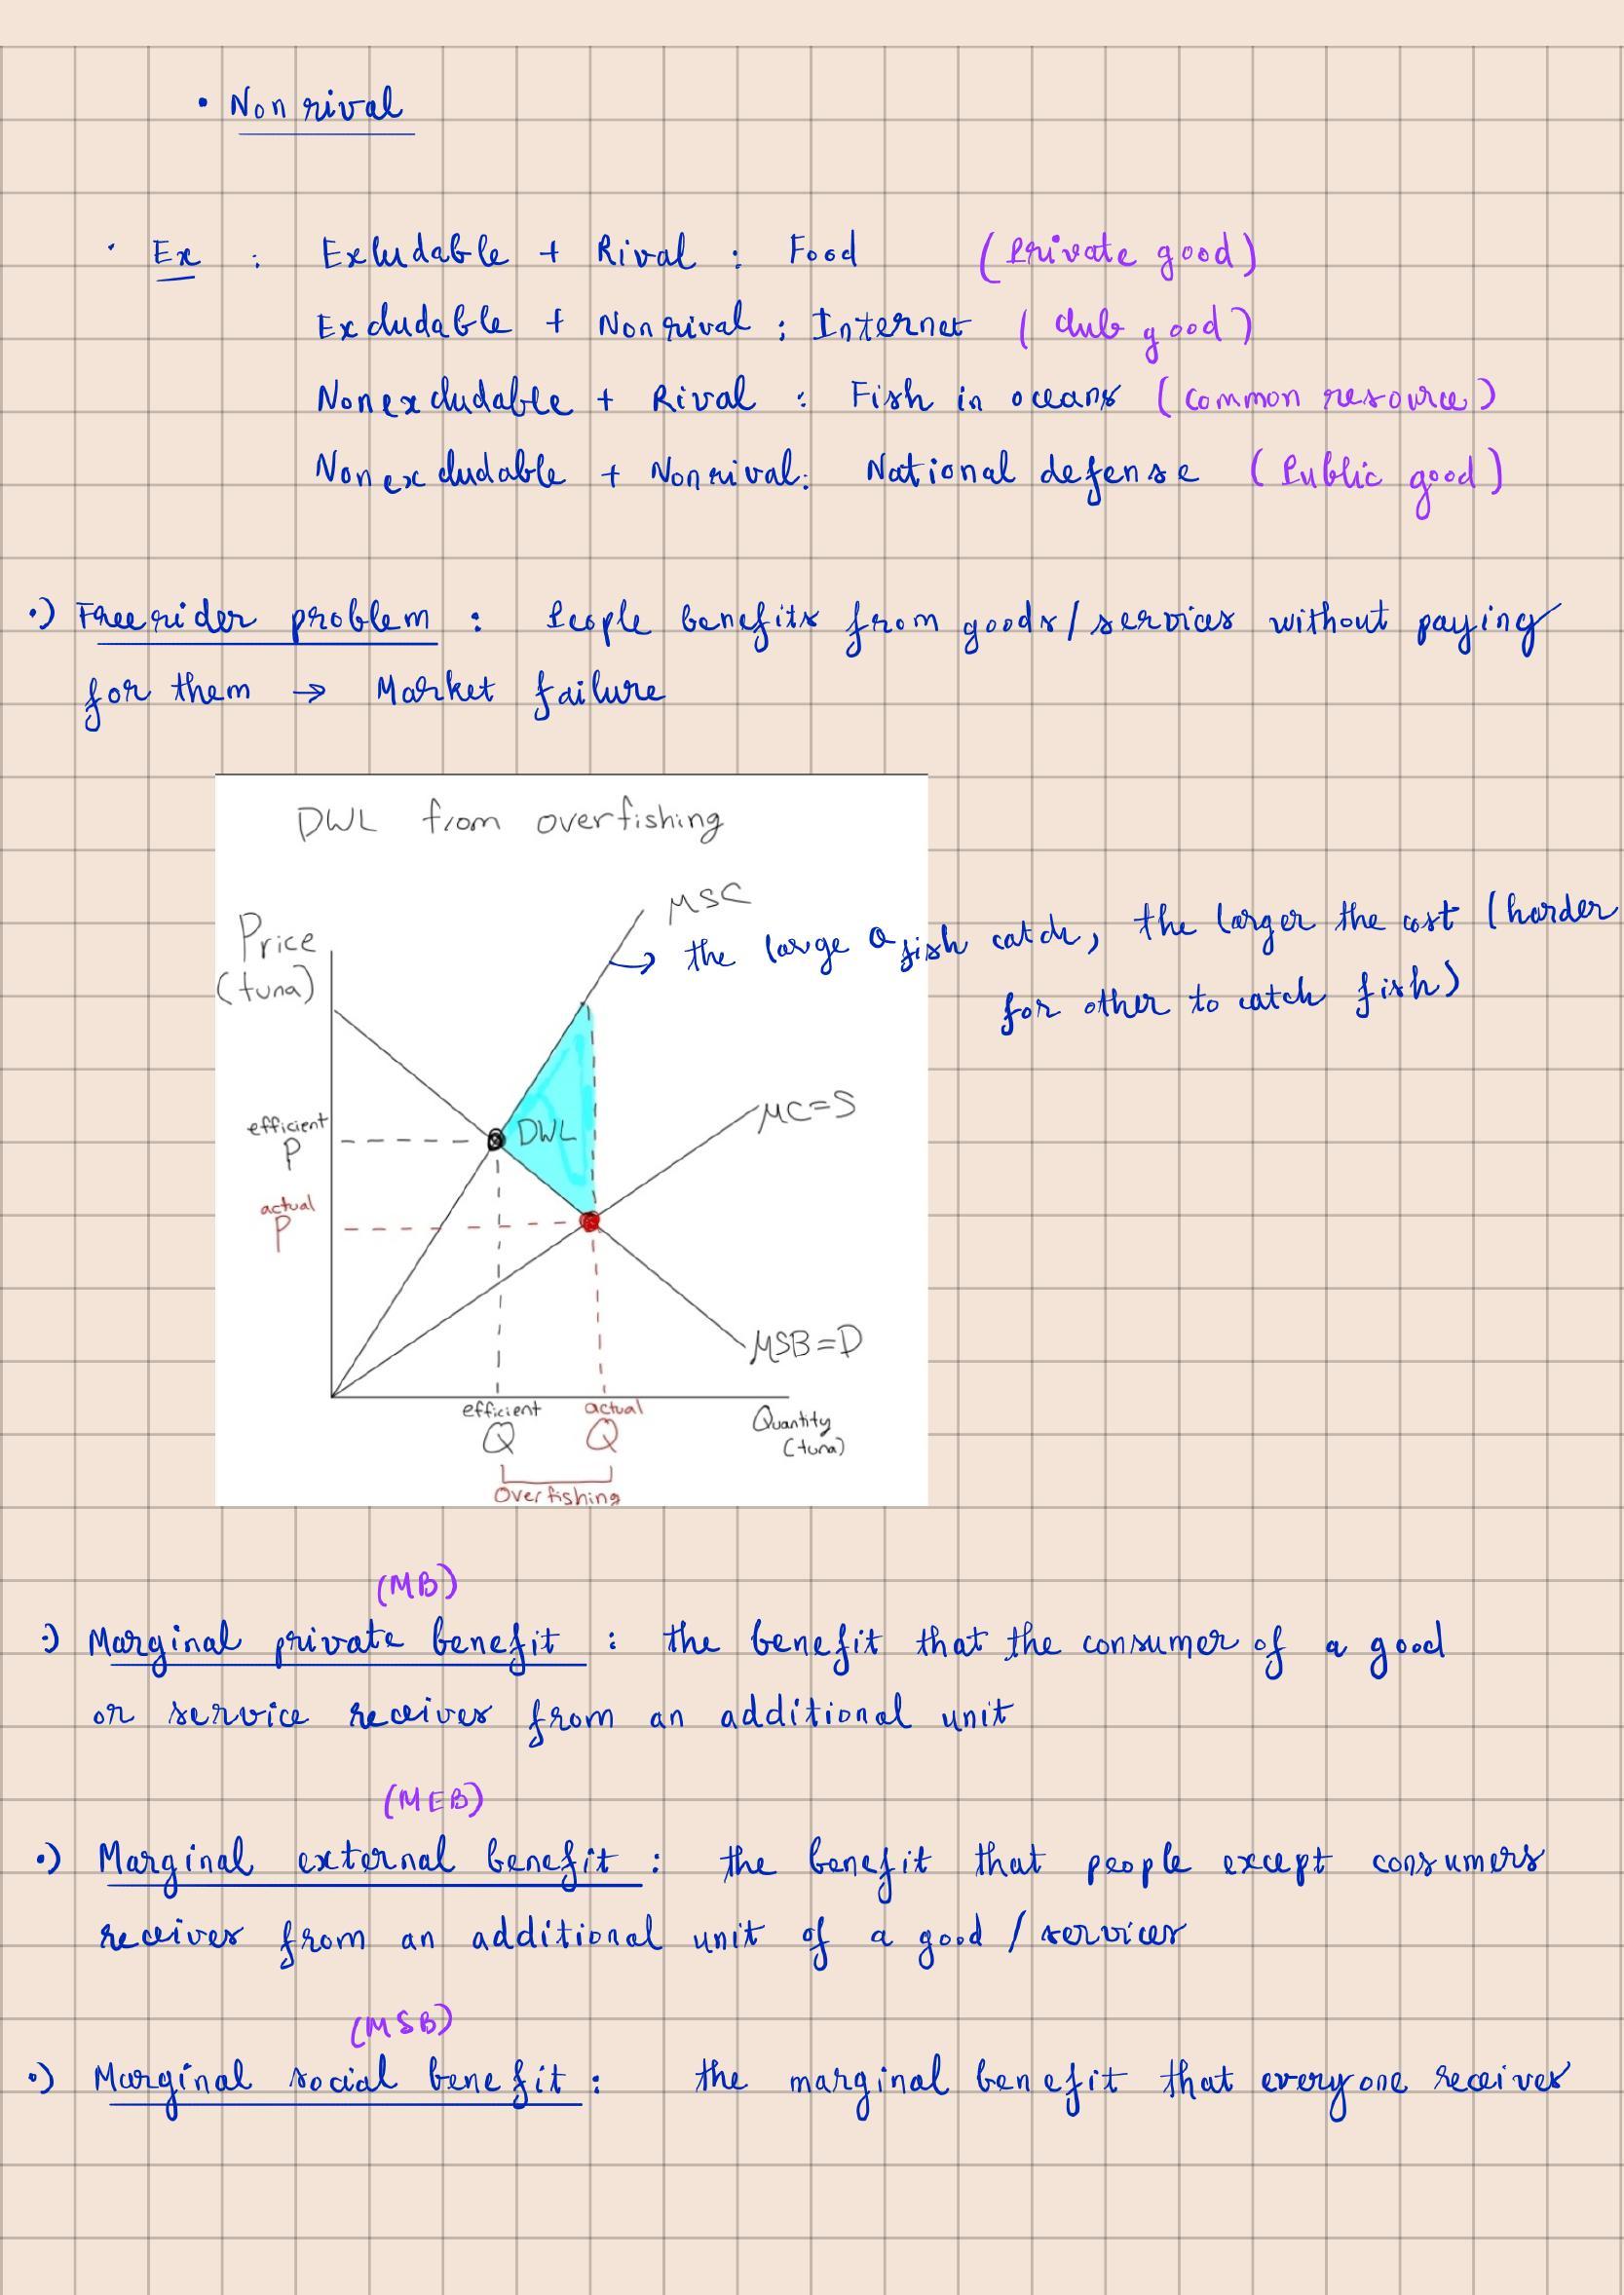 • Nonrival
• Ex : Exludable + Rival : Food (Private good)
Excludable + Nonrival : Internet (club good)
Nonexcludable + Rival : Fish in oceans (common resource)
Nonexcludable + Nonrival: National defense (Public good)
•) Free rider problem : People benefits from goods/services without paying
for them → Market failure
DWL from overfishing
MSC
Price
(tuna)
→ the large Q fish catch, the larger the cost (harder
for other to catch fish)
MC=S
efficient
P
DWL
actual
P
MSB=D
efficient
Q
actual
Q
Quantity
(tuna)
Overfishing
(MB)
•) Marginal private benefit : the benefit that the consumer of a good
or service receives from an additional unit
(MEB)
•) Marginal external benefit : the benefit that people except consumers
receives from an additional unit of a good / services
(MSB)
•) Marginal social benefit : the marginal benefit that everyone receives